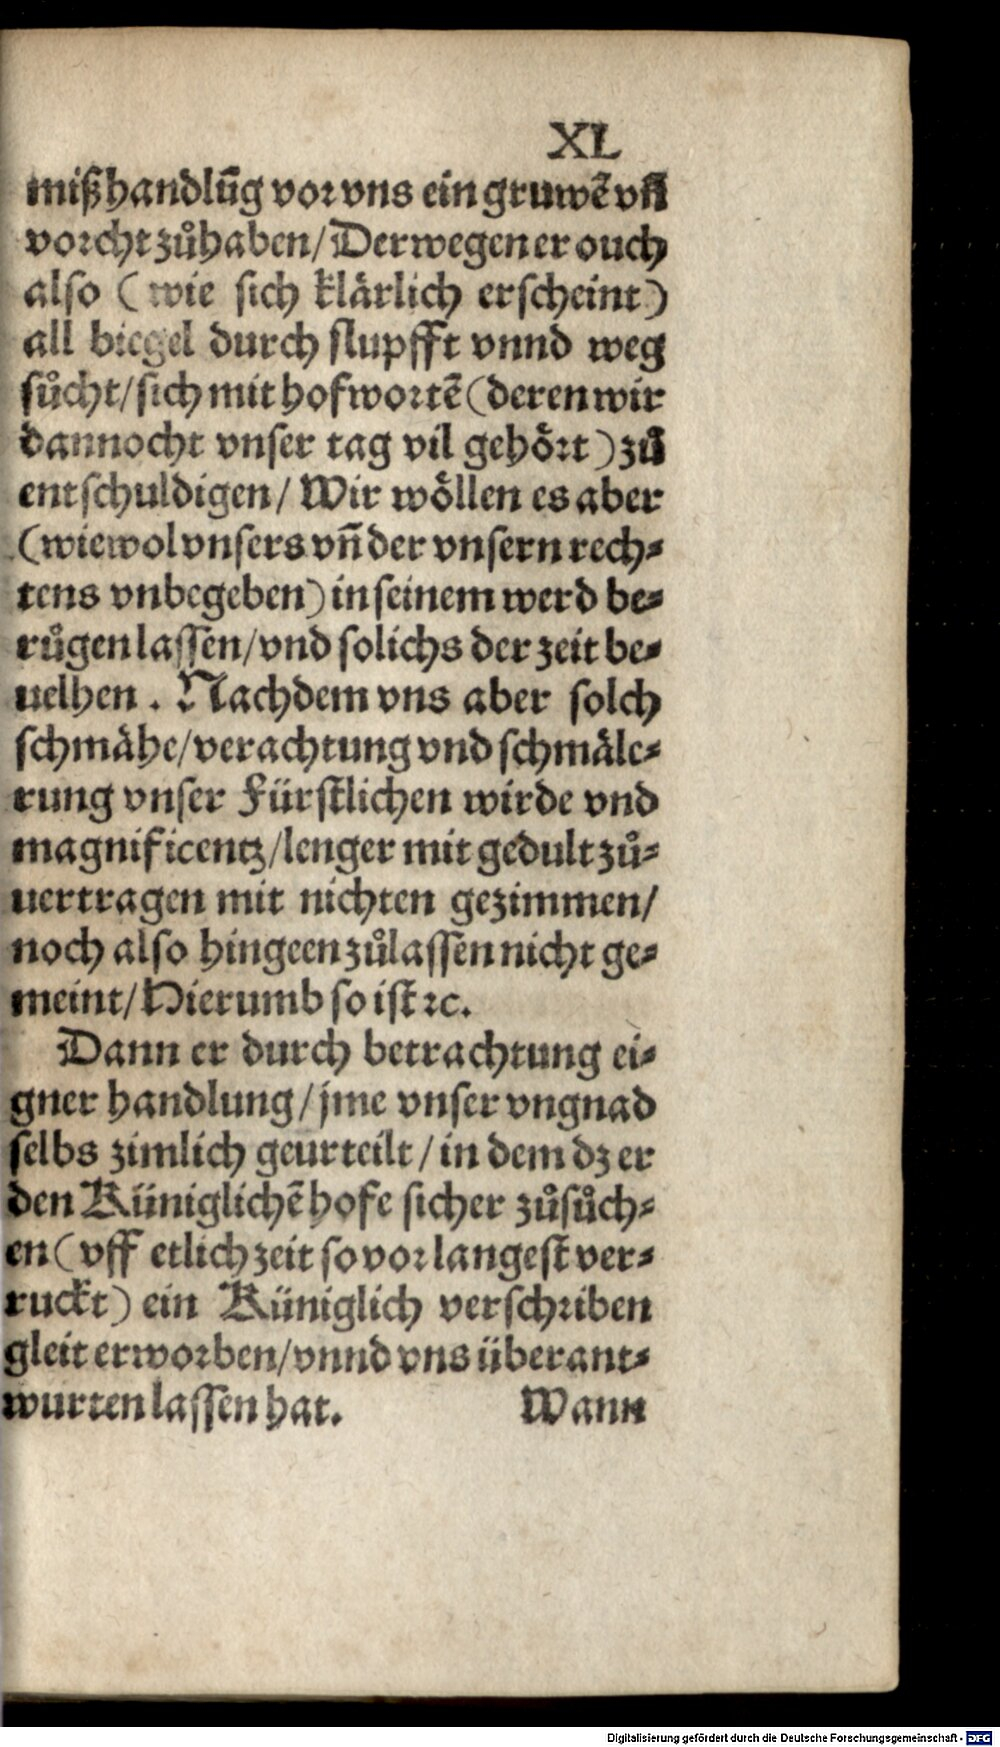 XL
mißhandlūg vor vns ein gruwē vn̄
vorcht zůhaben/Derwegen er ouch
also (wie sich klärlich erscheint)
all biegel durch slupfft vnnd weg
sůcht/sich mit hofwortē (deren wir
dannocht vnser tag vil gehört) zů
entschuldigen/ Wir wöllen es aber
(wiewol vnsers vn̄ der vnsern rech⸗
tens vnbegeben) in seinem werd be⸗
růgen lassen/vnd solichs der zeit be⸗
uelhen. Nachdem vns aber solch
schmähe/verachtung vnd schmäle⸗
rung vnser Fürstlichen wirde vnd
magnificentz/lenger mit gedult zů⸗
uertragen mit nichten gezimmen/
noch also hingeen zůlassen nicht ge⸗
meint/Hierumb so ist ꝛc.
Dann er durch betrachtung ei⸗
gner handlung/jme vnser vngnad
selbs zimlich geurteilt/in dem dz er
den Küniglichē hofe sicher zůsůch⸗
en (vff etlich zeit so vor langest ver⸗
ruckt) ein Küniglich verschriben
gleit erworben/vnnd vns überant⸗
wurten lassen hat. Wann
Digitalisierung gefördert durch die Deutsche Forschungsgemeinschaft - DFG